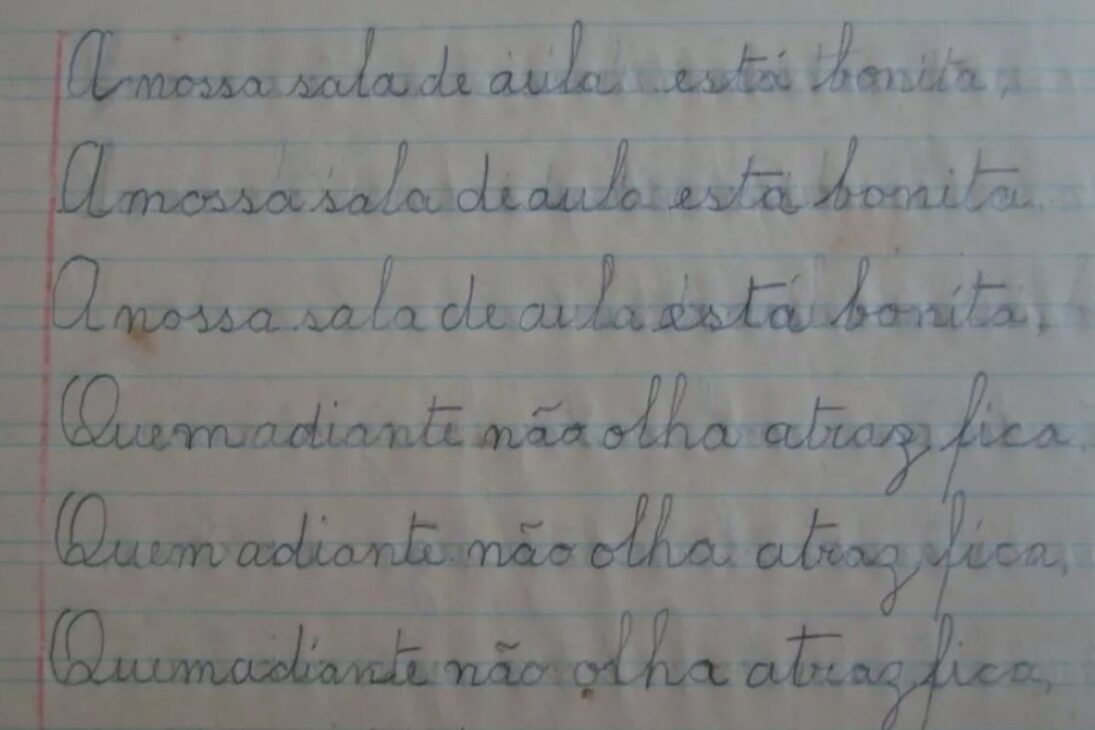 A nossa sala de áula está bonita,
A nossa sala de aula está bonita.
A nossa sala de aula está bonita.
Quem adiante não olha atraz fica.
Quem adiante não olha atraz, fica,
Quem adiante não olha atraz fica,